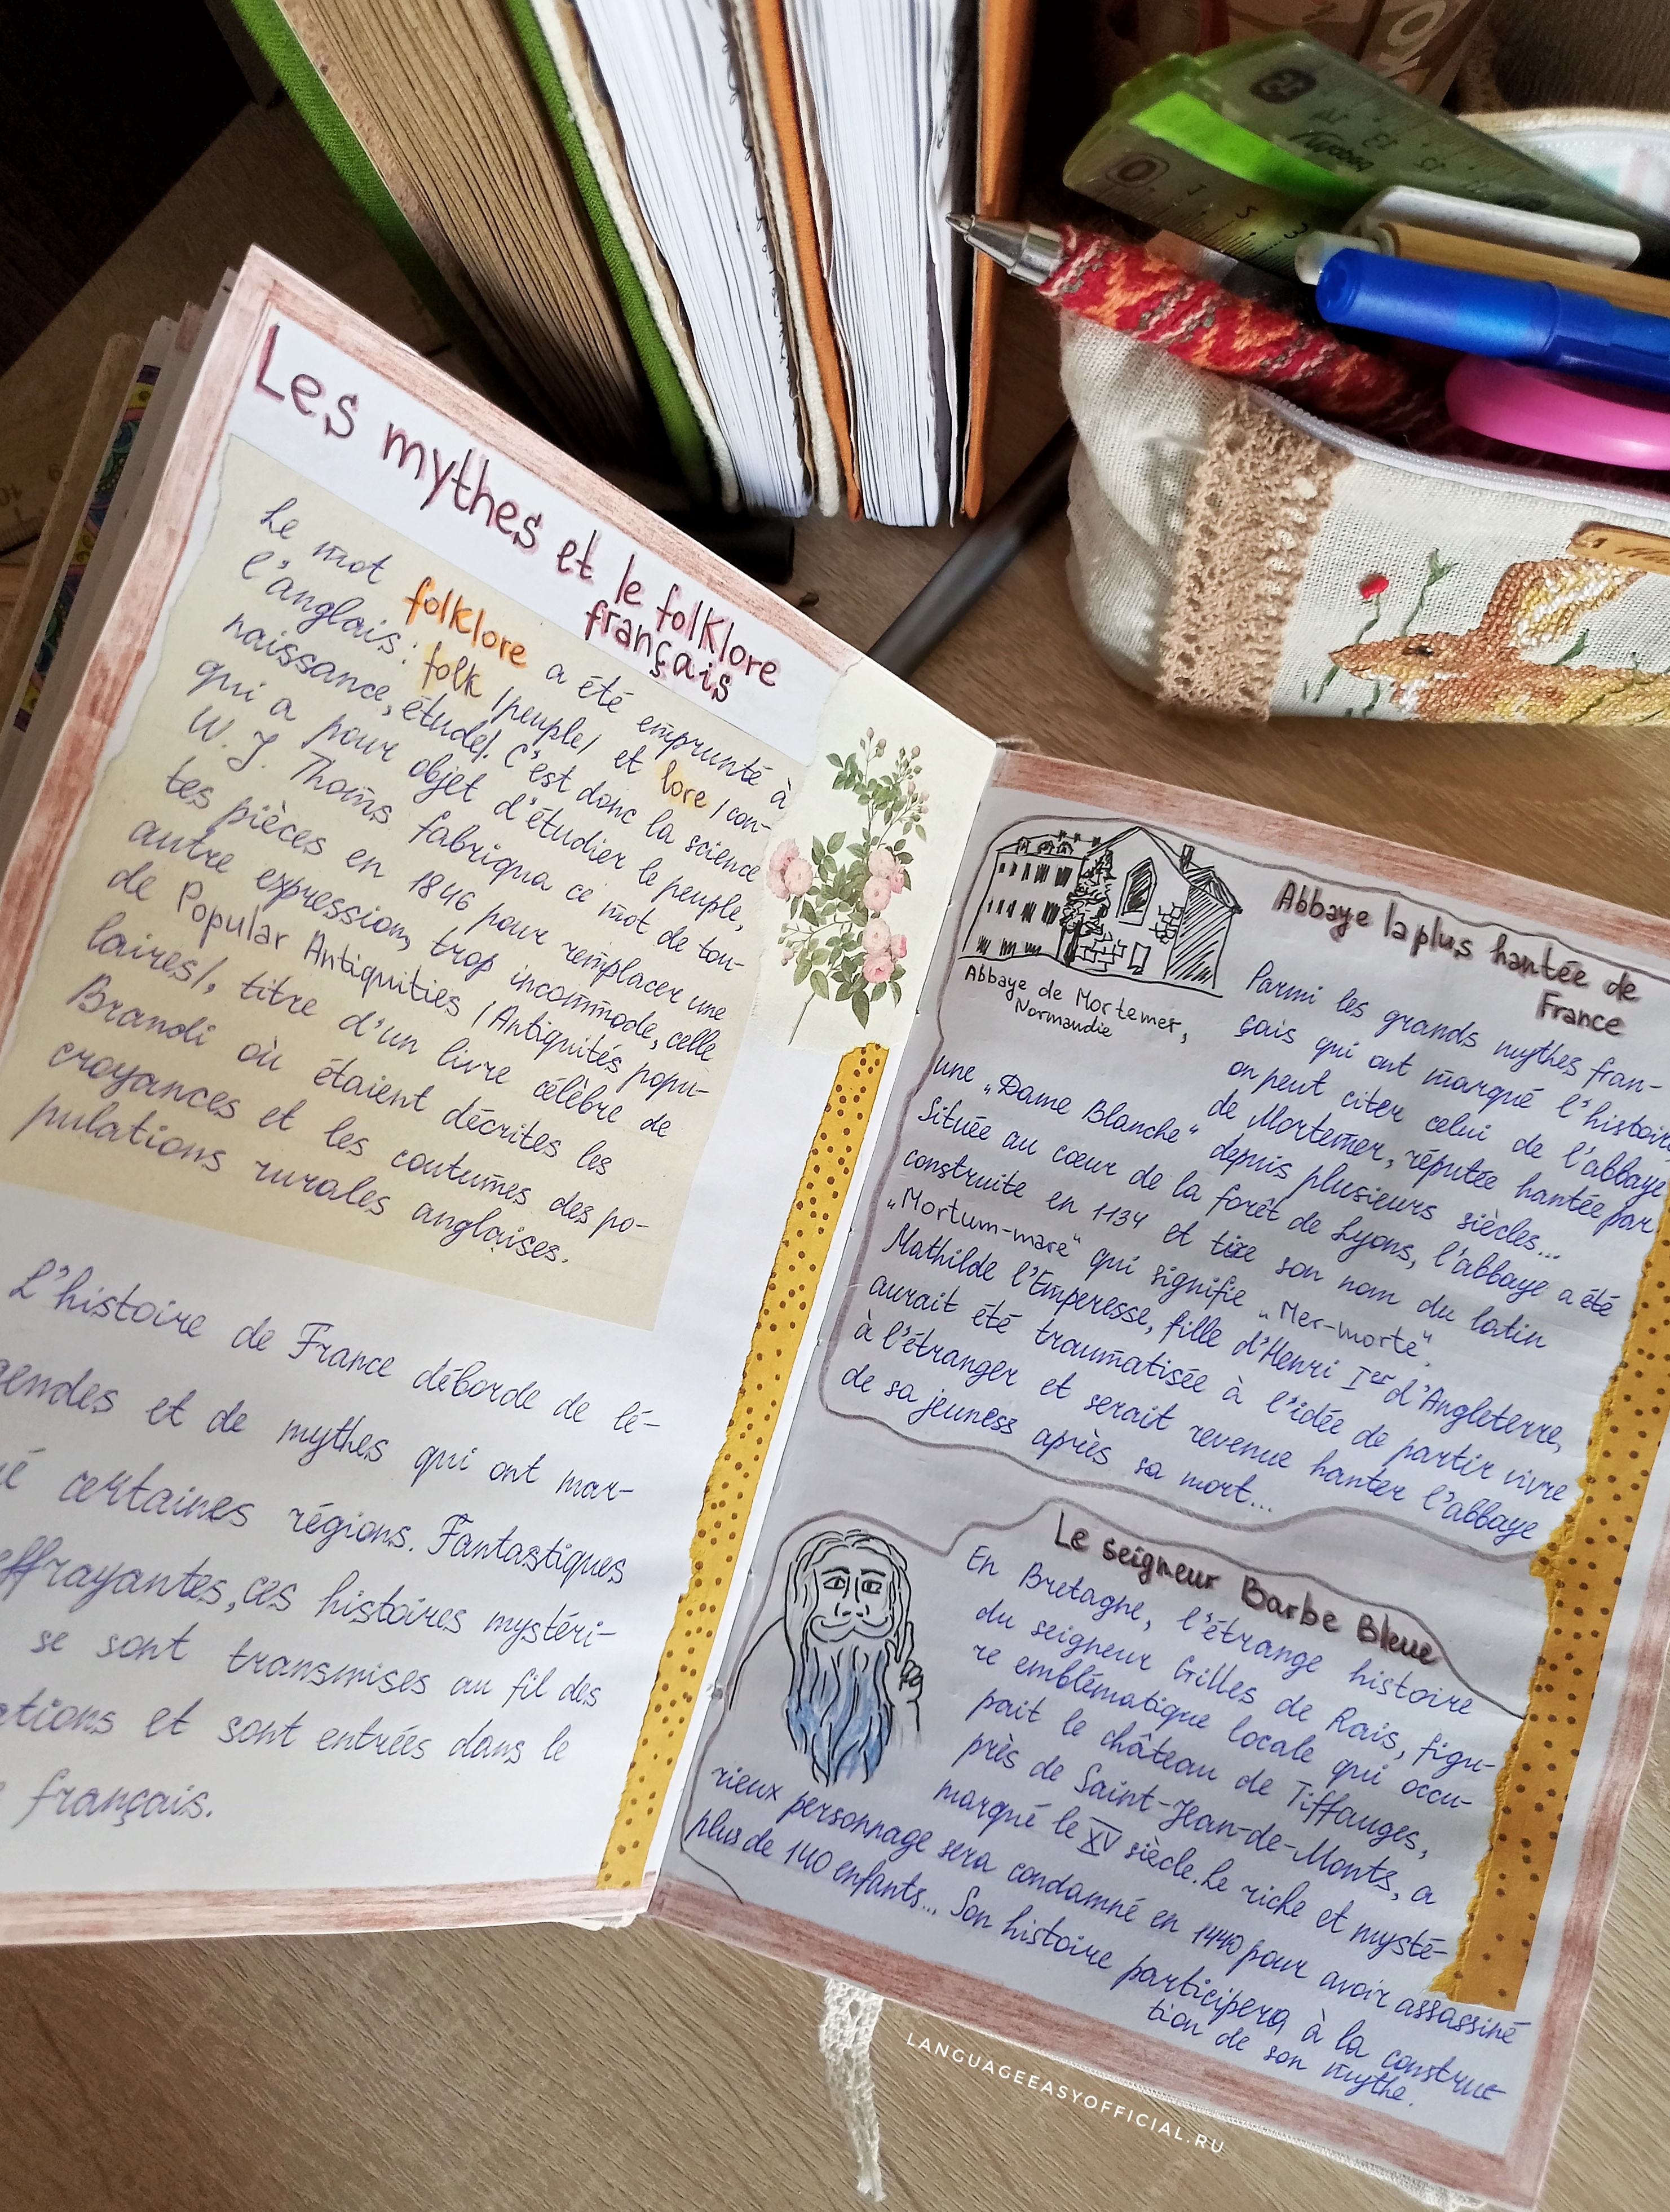 Les mythes et le folklore
français
Le mot folklore a été emprunté à
l'anglais: folk /peuple/ et lore /con-
naissance, étude/. C'est donc la science
qui a pour objet d'étudier le peuple,
W. J. Thoms fabriqua ce mot de tou-
tes pièces en 1846 pour remplacer une
autre expression, trop incommode, celle
de Popular Antiquities /Antiquités popu-
laires/, titre d'un livre célèbre de
Brandi où étaient décrites les
croyances et les coutumes des po-
pulations rurales anglaises.
L'histoire de France déborde de lé-
gendes et de mythes qui ont mar-
é certaines régions. Fantastiques
effrayantes, ces histoires mystéri-
se sont transmises au fil des
ations et sont entrées dans le
français.
Abbaye de Mortemer,
Normandie
Abbaye la plus hantée de
France
Parmi les grands mythes fran-
çais qui ont marqué l'histoire
on peut citer celui de l'abbaye
de Mortemer, réputée hantée par
une „Dame Blanche" depuis plusieurs siècles...
Située au cœur de la forêt de Lyons, l'abbaye a été
construite en 1134 et tixe son nom du latin
„Mortum-mare" qui signifie „Mer-morte".
Mathilde l'Emperesse, fille d'Henri Ier d'Angleterre,
aurait été traumatisée à l'idée de partir vivre
à l'étranger et serait revenue hanter l'abbaye
de sa jeuness après sa mort...
Le seigneur Barbe Bleue
En Bretagne, l'étrange histoire
du seigneur Gilles de Rais, figu-
re emblématique locale qui occu-
pait le château de Tiffauges,
près de Saint-Jean-de-Monts, a
marqué le XV siècle. Le riche et mysté-
rieux personnage sera condamné en 1440 pour avoir assassiné
plus de 140 enfants... Son histoire participera à la construct
tion de son mythe.
LANGUAGEEASYOFFICIAL.RU